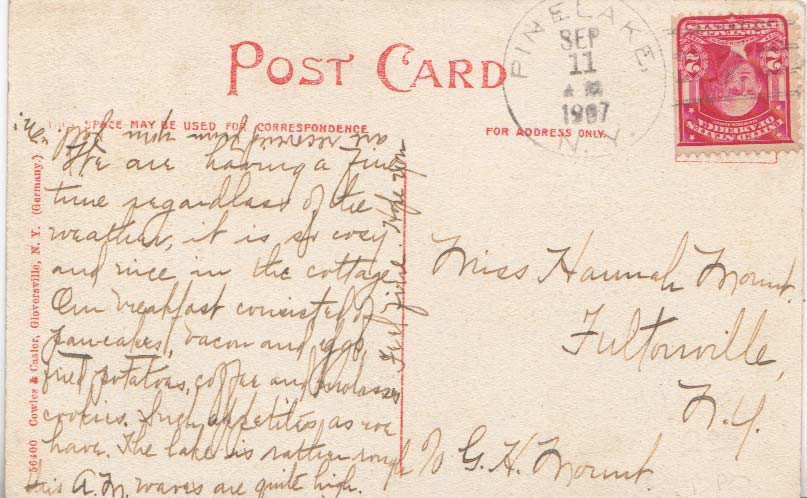 POST CARD
THIS SPACE MAY BE USED FOR CORRESPONDENCE
FOR ADDRESS ONLY.
PINE LAKE,
SEP
11
1907
N.Y.
UNITED STATES OF AMERICA
POSTAGE
2 2
We are having a fine
time regardless of the
weather, it is so cosy
and nice in the cottage
Our breakfast consisted of
pancakes, bacon and eggs,
fried potatoes, coffee and molasses
cookies. Such appetites as we
have. The lake is rather rough
this A.M. waves are quite high.
Hope
Miss Hannah Mount,
Fultonville,
N.Y.
% G. H. Mount.
56400 Cowles & Casler, Gloversville, N. Y. (Germany.)